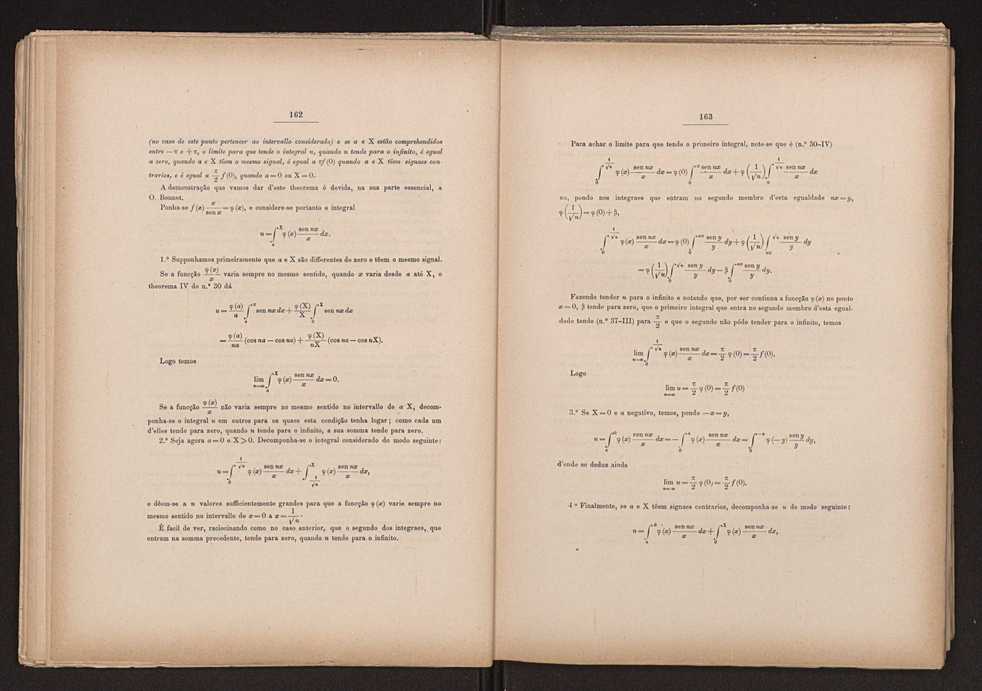 162
(no caso de este ponto pertencer ao intervallo considerado) e se a e X estão comprehendidos
entre —π e +π, o limite para que tende o integral u, quando n tende para o infinito, é egual
a zero, quando a e X têem o mesmo signal, é egual a πf(0) quando a e X têem signaes con-
trarios, e é egual a π/2 f(0), quando a = 0 ou X = 0.
A demonstração que vamos dar d'este theorema é devida, na sua parte essencial, a
O. Bonnet.
Ponha-se f(x) x/sen x = φ(x), e considere-se portanto o integral
u = ∫_a^X φ(x) sen nx/x dx.
1.º Supponhamos primeiramente que a e X são differentes de zero e têem o mesmo signal.
Se a funcção φ(x)/x varia sempre no mesmo sentido, quando x varia desde a até X, o
theorema IV do n.º 30 dá
u = φ(a)/a ∫_a^α sen nx dx + φ(X)/X ∫_α^X sen nx dx
= φ(a)/na (cos na — cos nα) + φ(X)/nX (cos nα — cos nX).
Logo temos
lim_{n=∞} ∫_a^X φ(x) sen nx/x dx = 0.
Se a funcção φ(x)/x não varia sempre no mesmo sentido no intervallo de a X, decom-
ponha-se o integral u em outros para os quaes esta condição tenha logar; como cada um
d'elles tende para zero, quando n tende para o infinito, a sua somma tende para zero.
2.º Seja agora a = 0 e X > 0. Decomponha-se o integral considerado do modo seguinte:
u = ∫_0^{1/√n} φ(x) sen nx/x dx + ∫_{1/√n}^X φ(x) sen nx/x dx,
e dêem-se a n valores sufficientemente grandes para que a funcção φ(x) varie sempre no
mesmo sentido no intervallo de x = 0 a x = 1/√n.
É facil de ver, raciocinando como no caso anterior, que o segundo dos integraes, que
entram na somma precedente, tende para zero, quando n tende para o infinito.
163
Para achar o limite para que tende o primeiro integral, note-se que é (n.º 30-IV)
∫_0^{1/√n} φ(x) sen nx/x dx = φ(0) ∫_0^α sen nx/x dx + φ(1/√n) ∫_α^{1/√n} sen nx/x dx
ou, pondo nos integraes que entram no segundo membro d'esta egualdade nx = y,
φ(1/√n) = φ(0) + β,
∫_0^{1/√n} φ(x) sen nx/x dx = φ(0) ∫_0^{nα} sen y/y dy + φ(1/√n) ∫_{nα}^{√n} sen y/y dy
= φ(1/√n) ∫_0^{√n} sen y/y dy — β ∫_0^{nα} sen y/y dy.
Fazendo tender n para o infinito e notando que, por ser continua a funcção φ(x) no ponto
x = 0, β tende para zero, que o primeiro integral que entra no segundo membro d'esta egual-
dade tende (n.º 37-III) para π/2 e que o segundo não póde tender para o infinito, temos
lim_{n=∞} ∫_0^{1/√n} φ(x) sen nx/x dx = π/2 φ(0) = π/2 f(0),
Logo
lim_{n=∞} u = π/2 φ(0) = π/2 f(0)
3.º Se X = 0 e a negativo, temos, pondo —x = y,
u = ∫_a^0 φ(x) sen nx/x dx = — ∫_0^a φ(x) sen nx/x dx = ∫_0^{—a} φ(—y) sen y/y dy,
d'onde se deduz ainda
lim_{n=∞} u = π/2 φ(0) = π/2 f(0).
4.º Finalmente, se a e X têem signaes contrarios, decomponha-se u do modo seguinte:
u = ∫_a^0 φ(x) sen nx/x dx + ∫_0^X φ(x) sen nx/x dx,